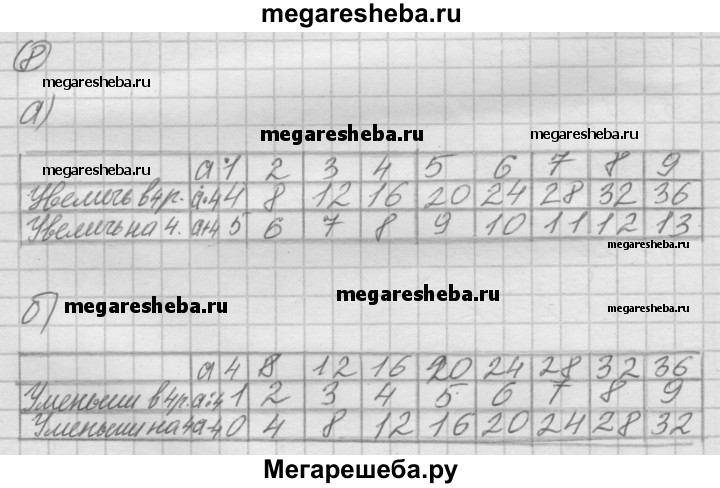 megaresheba.ru
8
megaresheba.ru
а)
megaresheba.ru megaresheba.ru
megaresheba.ru а 1 2 3 4 5 6 7 8 9
Увеличь в 4 р. а·4 4 8 12 16 20 24 28 32 36
Увеличь на 4. а+4 5 6 7 8 9 10 11 12 13
megaresheba.ru
б) megaresheba.ru megaresheba.ru megaresheba.ru
а 4 8 12 16 20 24 28 32 36
Уменьши в 4 р. а:4 1 2 3 4 5 6 7 8 9
Уменьши на 4 а-4 0 4 8 12 16 20 24 28 32
Мегарешеба.ру